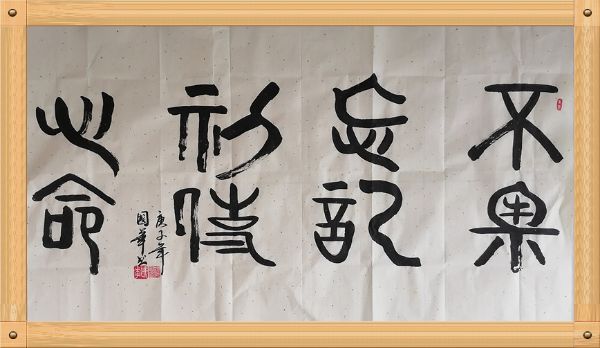 不忘初心
牢記使命
庚子年
国華书